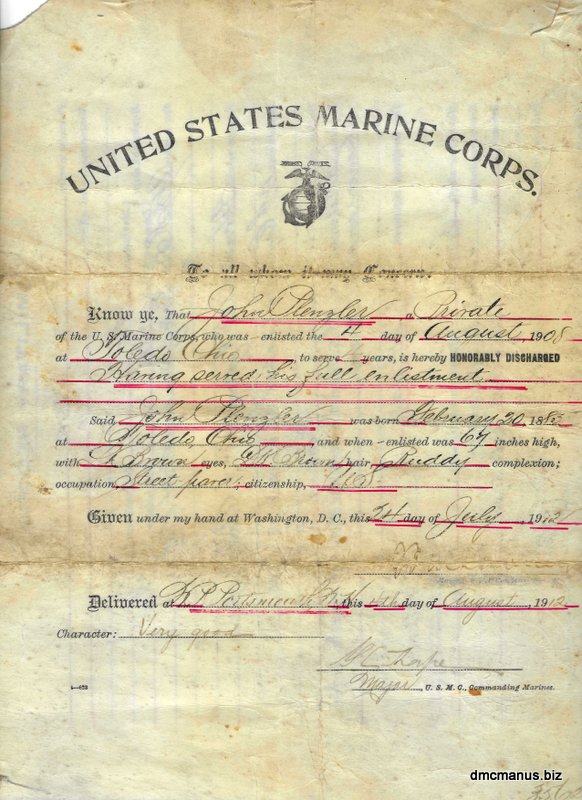 UNITED STATES MARINE CORPS.
To all whom it may Concern:
Know ye, That John Plenzler, a Private
of the U. S. Marine Corps, who was enlisted the 4 day of August, 1908
at Toledo Ohio to serve years, is hereby HONORABLY DISCHARGED
Having served his full enlistment
Said John Plenzler was born February 20, 188
at Toledo, Ohio, and when enlisted was 67 inches high,
with Brown eyes, Brown hair, Ruddy complexion;
occupation, Street paver; citizenship, U.S.
Given under my hand at Washington, D. C., this 24 day of July, 1912
Delivered at Portsmouth, N.H. this 4th day of August, 1912
Character: Very good
Thorpe
Major, U. S. M. C., Commanding Marines.
dmcmanus.biz